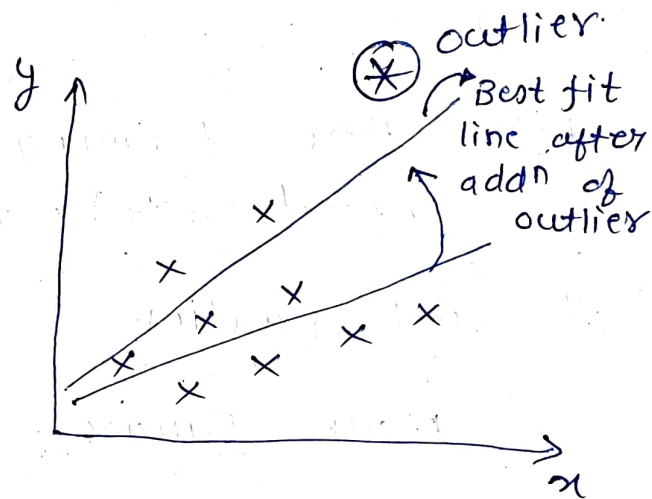 y
outlier.
Best fit
line after
addn of
outlier
x